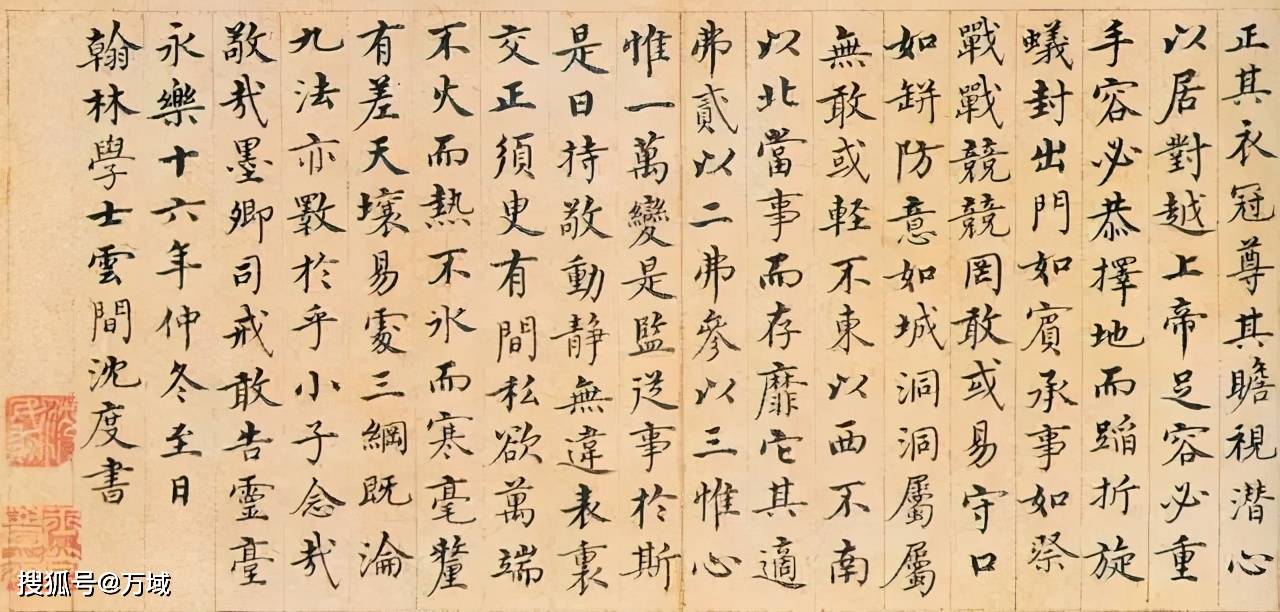 正其衣冠尊其瞻視潜心
以居對越上帝足容必重
手容必恭擇地而蹈折旋
蟻封出門如賓承事如祭
戰戰競競罔敢或易守口
如缾防意如城洞洞屬屬
無敢或軽不東以西不南
以北當事而存靡它其適
弗貳以二弗參以三惟心
惟一萬變是監従事於斯
是曰持敬動静無違表裏
交正須臾有間私欲萬端
不火而熱不氷而寒毫釐
有差天壤易處三綱既淪
九法亦斁於乎小子念哉
敬哉墨卿司戒敢告靈臺
永樂十六年仲冬至日
翰林學士雲間沈度書
搜狐号@万域